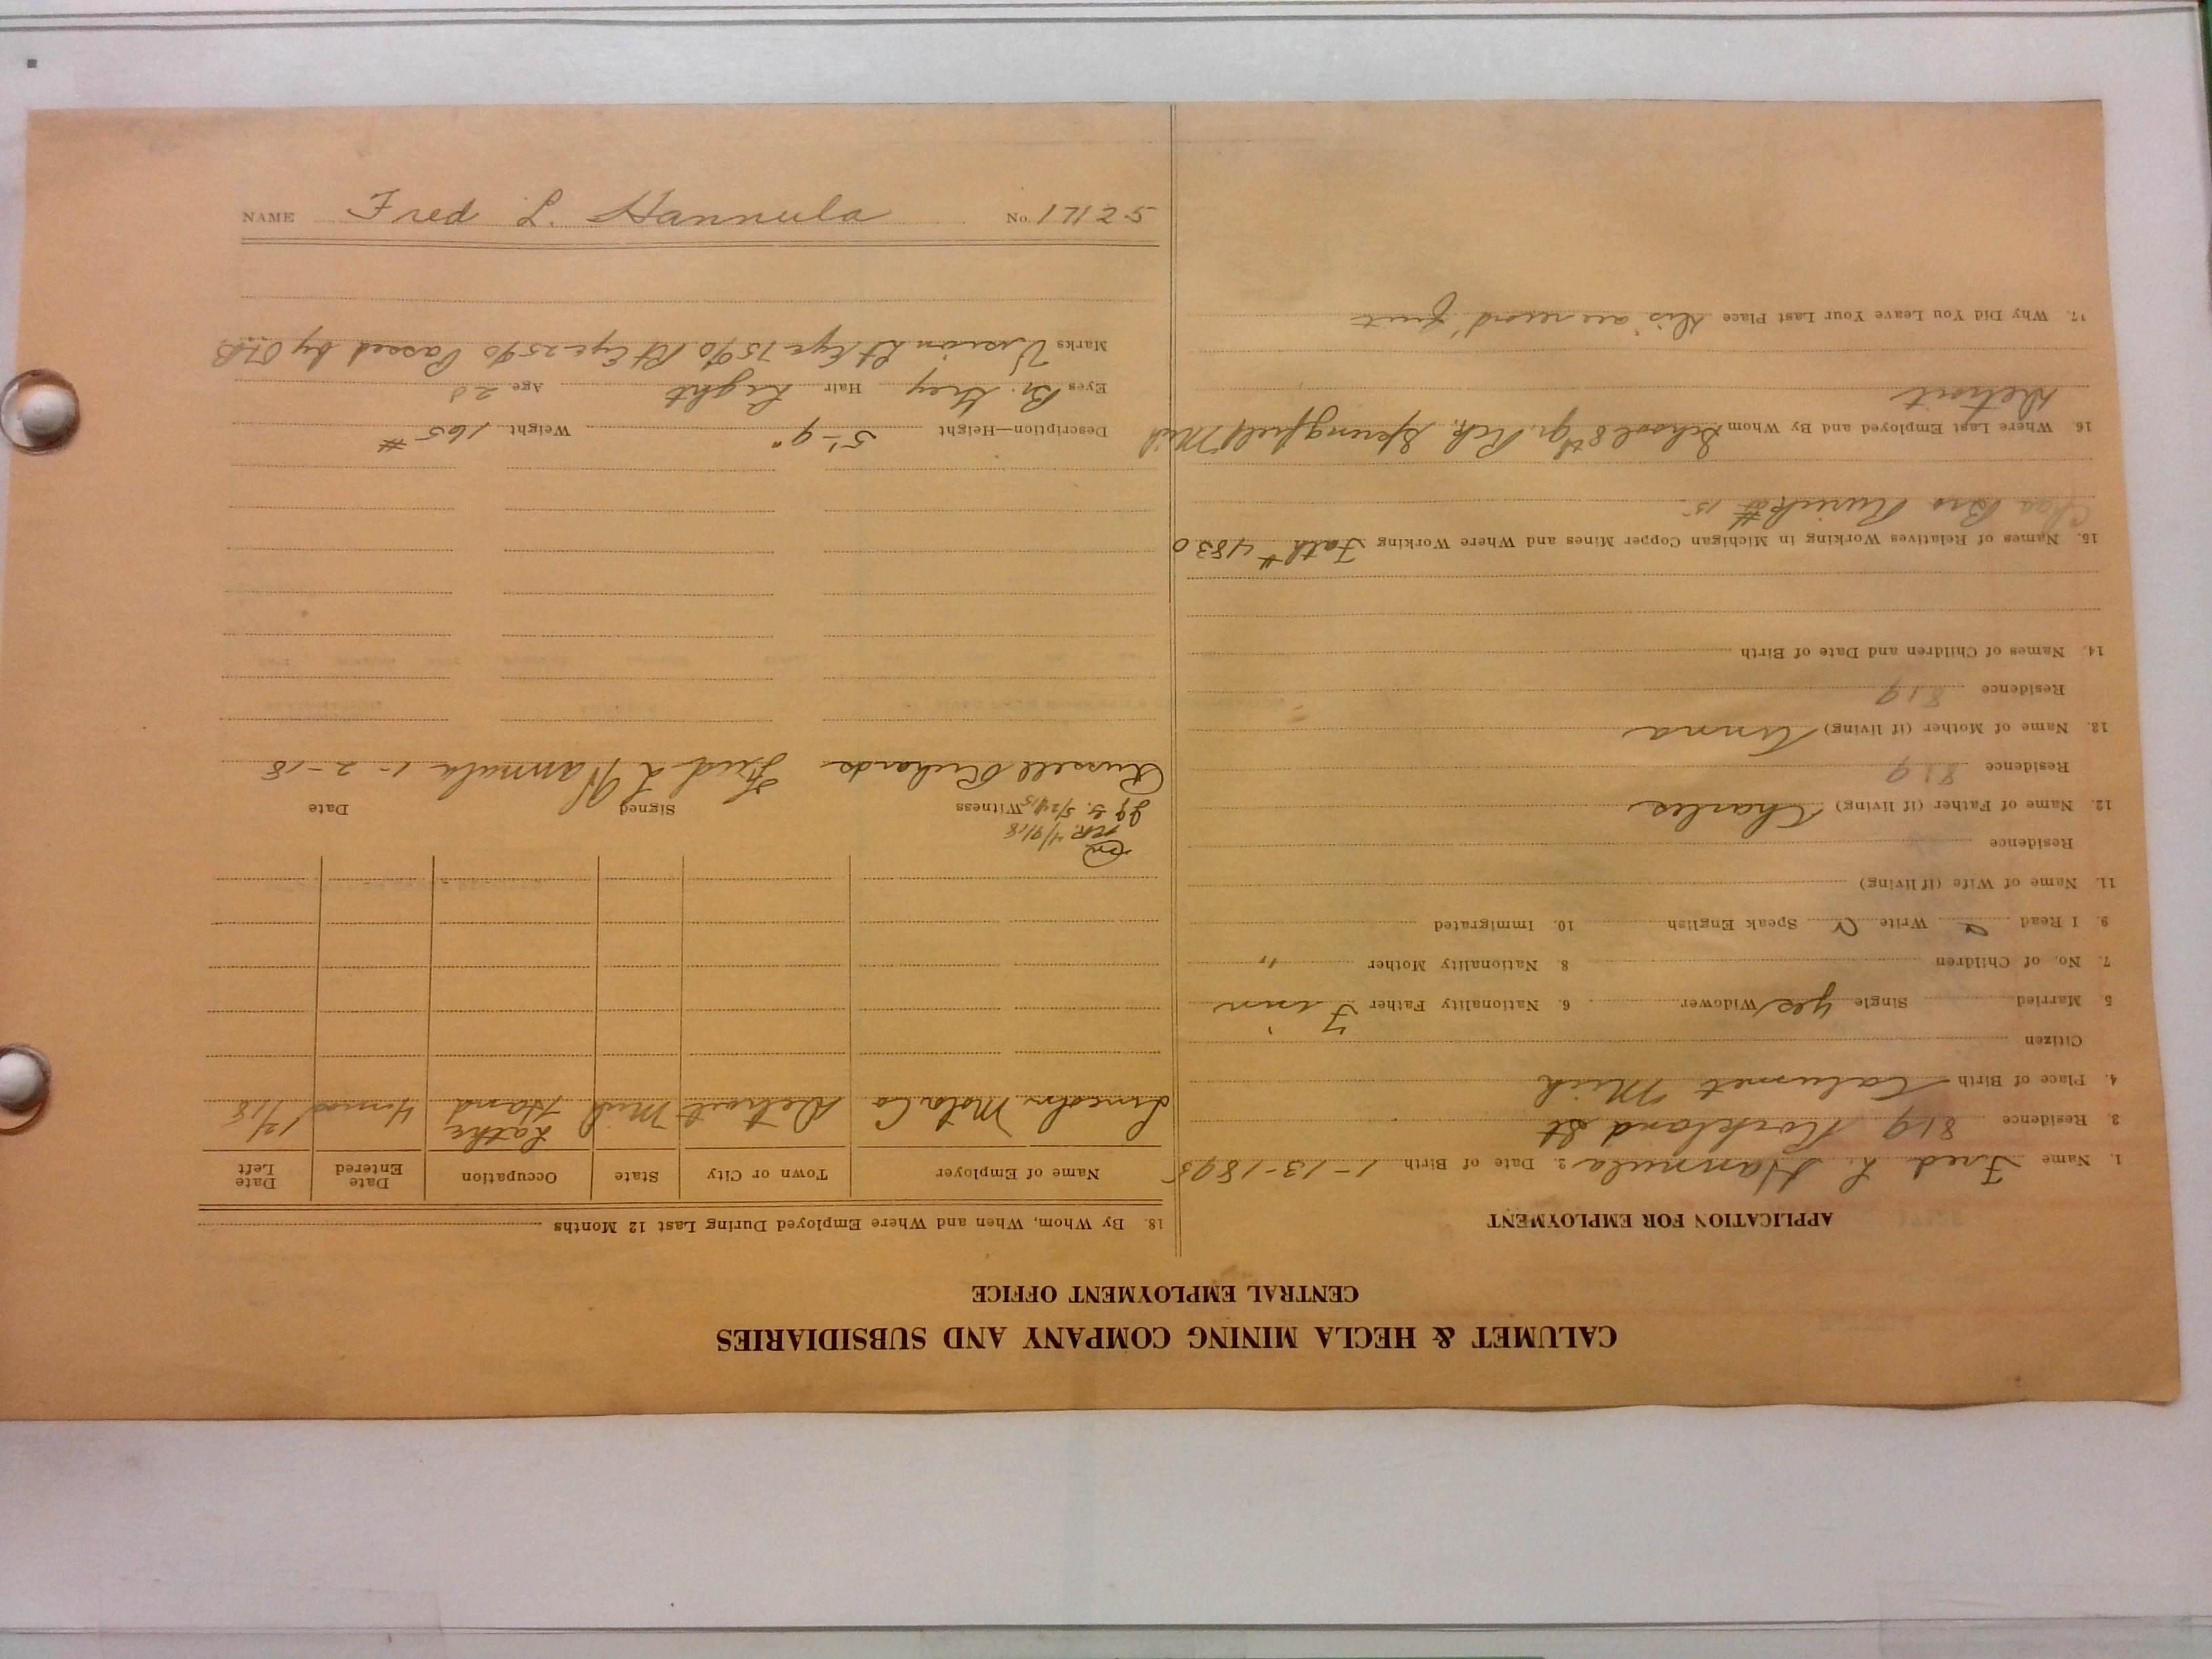 CALUMET & HECLA MINING COMPANY AND SUBSIDIARIES
CENTRAL EMPLOYMENT OFFICE
APPLICATION FOR EMPLOYMENT
1. Name Fred L. Hannula 2. Date of Birth 1-13-1895
3. Residence 819 Rockland St
4. Place of Birth Calumet Mich
Citizen
5. Married Single yes Widower 6. Nationality Father Finn
7. No. of Children 8. Nationality Mother "
9. I Read Write Speak English 10. Immigrated
11. Name of Wife (if living)
Residence
12. Name of Father (if living) Charles
Residence 819
13. Name of Mother (if living) Anna
Residence 819
14. Names of Children and Date of Birth
15. Names of Relatives Working in Michigan Copper Mines and Where Working Fath # 4830
Chas Bro # 15
16. Where Last Employed and By Whom School 8th gr.
Detroit
17. Why Did You Leave Your Last Place this acc record quit
18. By Whom, When and Where Employed During Last 12 Months
Name of Employer Town or City State Occupation Date Entered Date Left
Lincoln Motor Co Detroit Mich Lathe Hand 4 mos
4/9/18
Witness Signed Date
Russell Richards Fred L Hannula 1-2-18
Description—Height 5'-9" Weight 165 #
Eyes Br. Grey Hair Light Age
Marks Vision Lt Eye 75% Rt Eye 25% Passed by
NAME Fred L. Hannula No. 17125